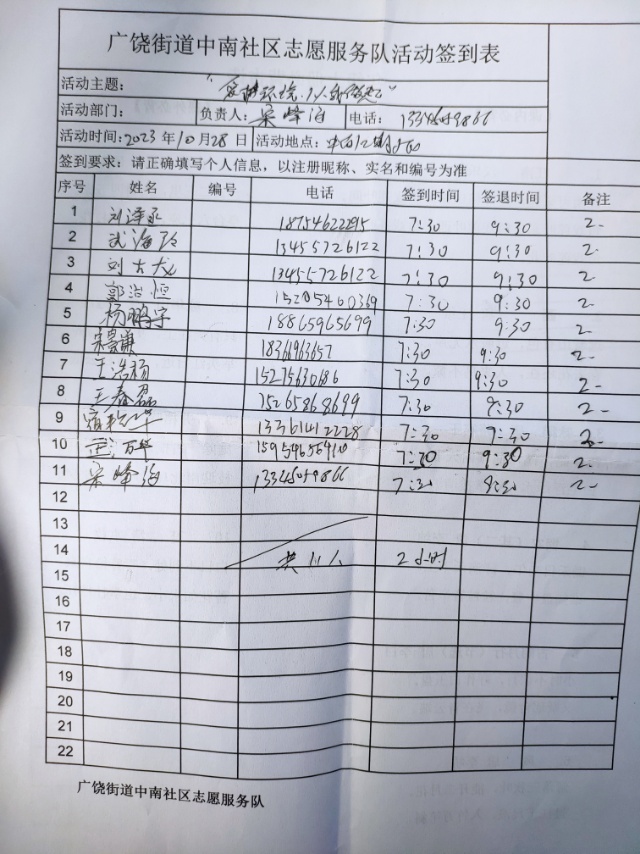 广饶街道中南社区志愿服务队活动签到表
活动主题：
活动部门： 负责人：宋峰海 电话：13345059866
活动时间：2023年10月28日 活动地点：
签到要求：请正确填写个人信息，以注册昵称、实名和编号为准
序号 姓名 编号 电话 签到时间 签退时间 备注
1 18754622295 7:30 9:30 2
2 武海玲 13455726122 7:30 9:30 2
3 刘大龙 13455726122 7:30 9:30 2
4 郭治恒 15205460369 7:30 9:30 2
5 杨鹏宇 18865965699 7:30 9:30 2
6 7:30 9:30 2
7 王浩杨 15275630686 7:30 9:30 2
8 王春磊 15265868699 7:30 9:30 2
9 13361412228 7:30 9:30 2
10 7:30 9:30 2
11 宋峰海 13345059866 7:30 9:30 2
12
13
14 共11人 2小时
15
16
17
18
19
20
21
22
广饶街道中南社区志愿服务队